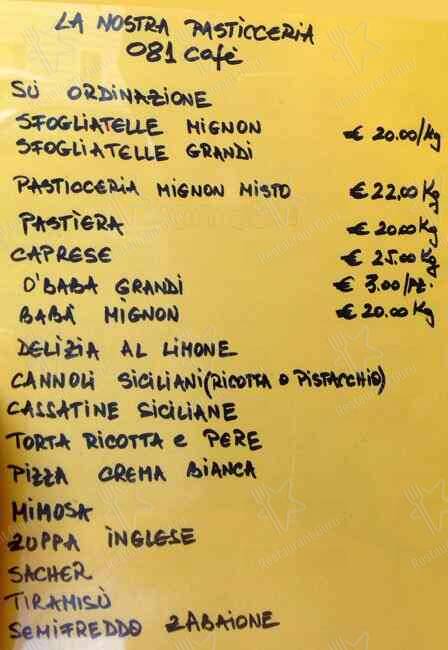 LA NOSTRA PASTICCERIA
081 Cafè
SU ORDINAZIONE
SFOGLIATELLE MIGNON € 20.00/Kg
SFOGLIATELLE GRANDI
PASTICCERIA MIGNON MISTO € 22,00 Kg
PASTIERA € 20.00 Kg
CAPRESE € 25.00 Kg
O'BABA GRANDI € 3.00/PZ.
BABÀ MIGNON € 20.00 Kg
DELIZIA AL LIMONE
CANNOLI SICILIANI (RICOTTA O PISTACCHIO)
CASSATINE SICILIANE
TORTA RICOTTA e PERE
PIZZA CREMA BIANCA
MIMOSA
ZUPPA INGLESE
SACHER
TIRAMISÙ
SEMIFREDDO ZABAIONE